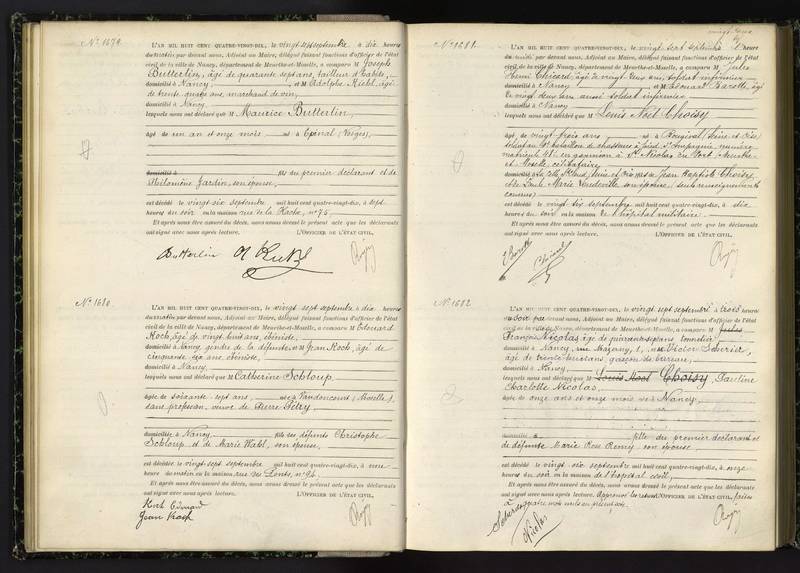 N° 1679
L'AN MIL HUIT CENT QUATRE-VINGT-DIX, le vingt sept septembre à dix heures
du matin par devant nous, Adjoint au Maire, délégué faisant fonctions d'officier de l'état
civil de la ville de Nancy, département de Meurthe-et-Moselle, a comparu M Joseph
Butterlin, âgé de quarante sept ans, tailleur d'habits,
domicilié à Nancy, et M Adolphe Richl, âgé
de trente quatre ans, marchand de vin,
domicilié à Nancy
lesquels nous ont déclaré que M Maurice Butterlin
âgé de un an et onze mois né à Epinal (Vosges),
domicilié à fils du premier déclarant et de
Philomène Jardin, son épouse,
est décédé le vingt six septembre mil huit cent quatre-vingt-dix, à sept
heures du soir en la maison rue de la Hache, n° 75
Et après nous être assuré du décès, nous avons dressé le présent acte que les déclarants
ont signé avec nous après lecture. L'OFFICIER DE L'ÉTAT CIVIL,
Butterlin
N° 1680
L'AN MIL HUIT CENT QUATRE-VINGT-DIX, le vingt sept septembre à dix heures
du matin par devant nous, Adjoint au Maire, délégué faisant fonctions d'officier de l'état
civil de la ville de Nancy, département de Meurthe-et-Moselle, a comparu M Edouard
Koch, âgé de vingt huit ans, ébéniste,
domicilié à Nancy, gendre de la défunte et M Jean Koch, âgé de
cinquante six ans, ébéniste,
domicilié à Nancy
lesquels nous ont déclaré que M Catherine Schloup
âgée de soixante sept ans, née à Vaudoncourt (Moselle),
sans profession, veuve de Pierre Pétry
domiciliée à Nancy fille des défunts Christophe
Schloup et de Marie Wahl, son épouse,
est décédée le vingt sept septembre mil huit cent quatre-vingt-dix, à une
heure du matin en la maison rue des Ponts, n° 94
Et après nous être assuré du décès, nous avons dressé le présent acte que les déclarants
ont signé avec nous après lecture. L'OFFICIER DE L'ÉTAT CIVIL,
Koch Edouard
Jean Koch
N° 1681
L'AN MIL HUIT CENT QUATRE-VINGT-DIX, le vingt sept septembre à heure
du par devant nous, Adjoint au Maire, délégué faisant fonctions d'officier de l'état
civil de la ville de Nancy, département de Meurthe-et-Moselle, a comparu M Jules
Henri Chicard, âgé de vingt deux ans, soldat infirmier
domicilié à Nancy et M Edouard Barelle, âgé
de vingt deux ans aussi soldat infirmier
domicilié à Nancy
lesquels nous ont déclaré que M Louis Noël Choisy
âgé de vingt trois ans né à Bougival (Seine et Oise)
soldat au bataillon de chasseurs à pied, Compagnie, numéro
matricule en garnison à St Nicolas du Port, Meurthe
et Moselle, célibataire,
domicilié à la Celle St Cloud, Seine et Oise fils de Jean Baptiste Choisy
et de Marie son épouse (seuls renseignements
connus)
est décédé le vingt six septembre mil huit cent quatre-vingt-dix, à dix
heures du soir en la maison l'hôpital militaire
Et après nous être assuré du décès, nous avons dressé le présent acte que les déclarants
ont signé avec nous après lecture. L'OFFICIER DE L'ÉTAT CIVIL,
N° 1682
L'AN MIL HUIT CENT QUATRE-VINGT-DIX, le vingt sept septembre à trois heures
du soir par devant nous, Adjoint au Maire, délégué faisant fonctions d'officier de l'état
civil de la ville de Nancy, département de Meurthe-et-Moselle, a comparu M
François Nicolas, âgé de quarante sept ans tonnelier
domicilié à Nancy, rue Mazagny, 1, et M Victor
âgé de trente huit ans, garçon de bureau,
domicilié à Nancy
lesquels nous ont déclaré que M Louis Noël Choisy, Pauline
Charlotte Nicolas,
âgée de onze ans et onze mois née à Nancy
domiciliée à fille du premier déclarant et
de défunte Marie Rose Remy son épouse
est décédée le vingt six septembre mil huit cent quatre-vingt-dix, à onze
heures du soir en la maison de l'hôpital civil,
Et après nous être assuré du décès, nous avons dressé le présent acte que les déclarants
ont signé avec nous après lecture. L'OFFICIER DE L'ÉTAT CIVIL,
quatre mots nuls au présent acte.
Nicolas